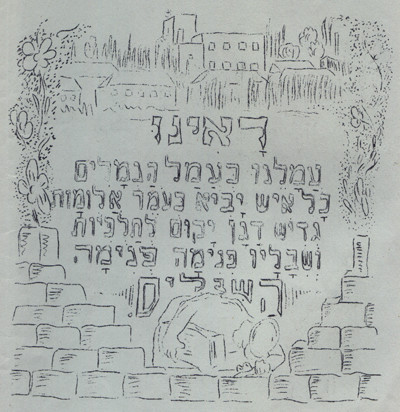 ראינו
עמלנו כעמל הנמלים
כל איש יביא כעמר אלומות
גדיש דגן יקום לתלפיות
ושבליו פנימה פנימה
השבלים